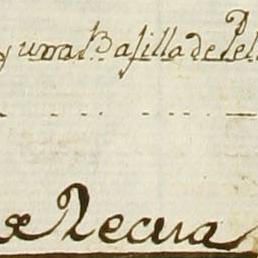 y una Basilla de Pel
Recua